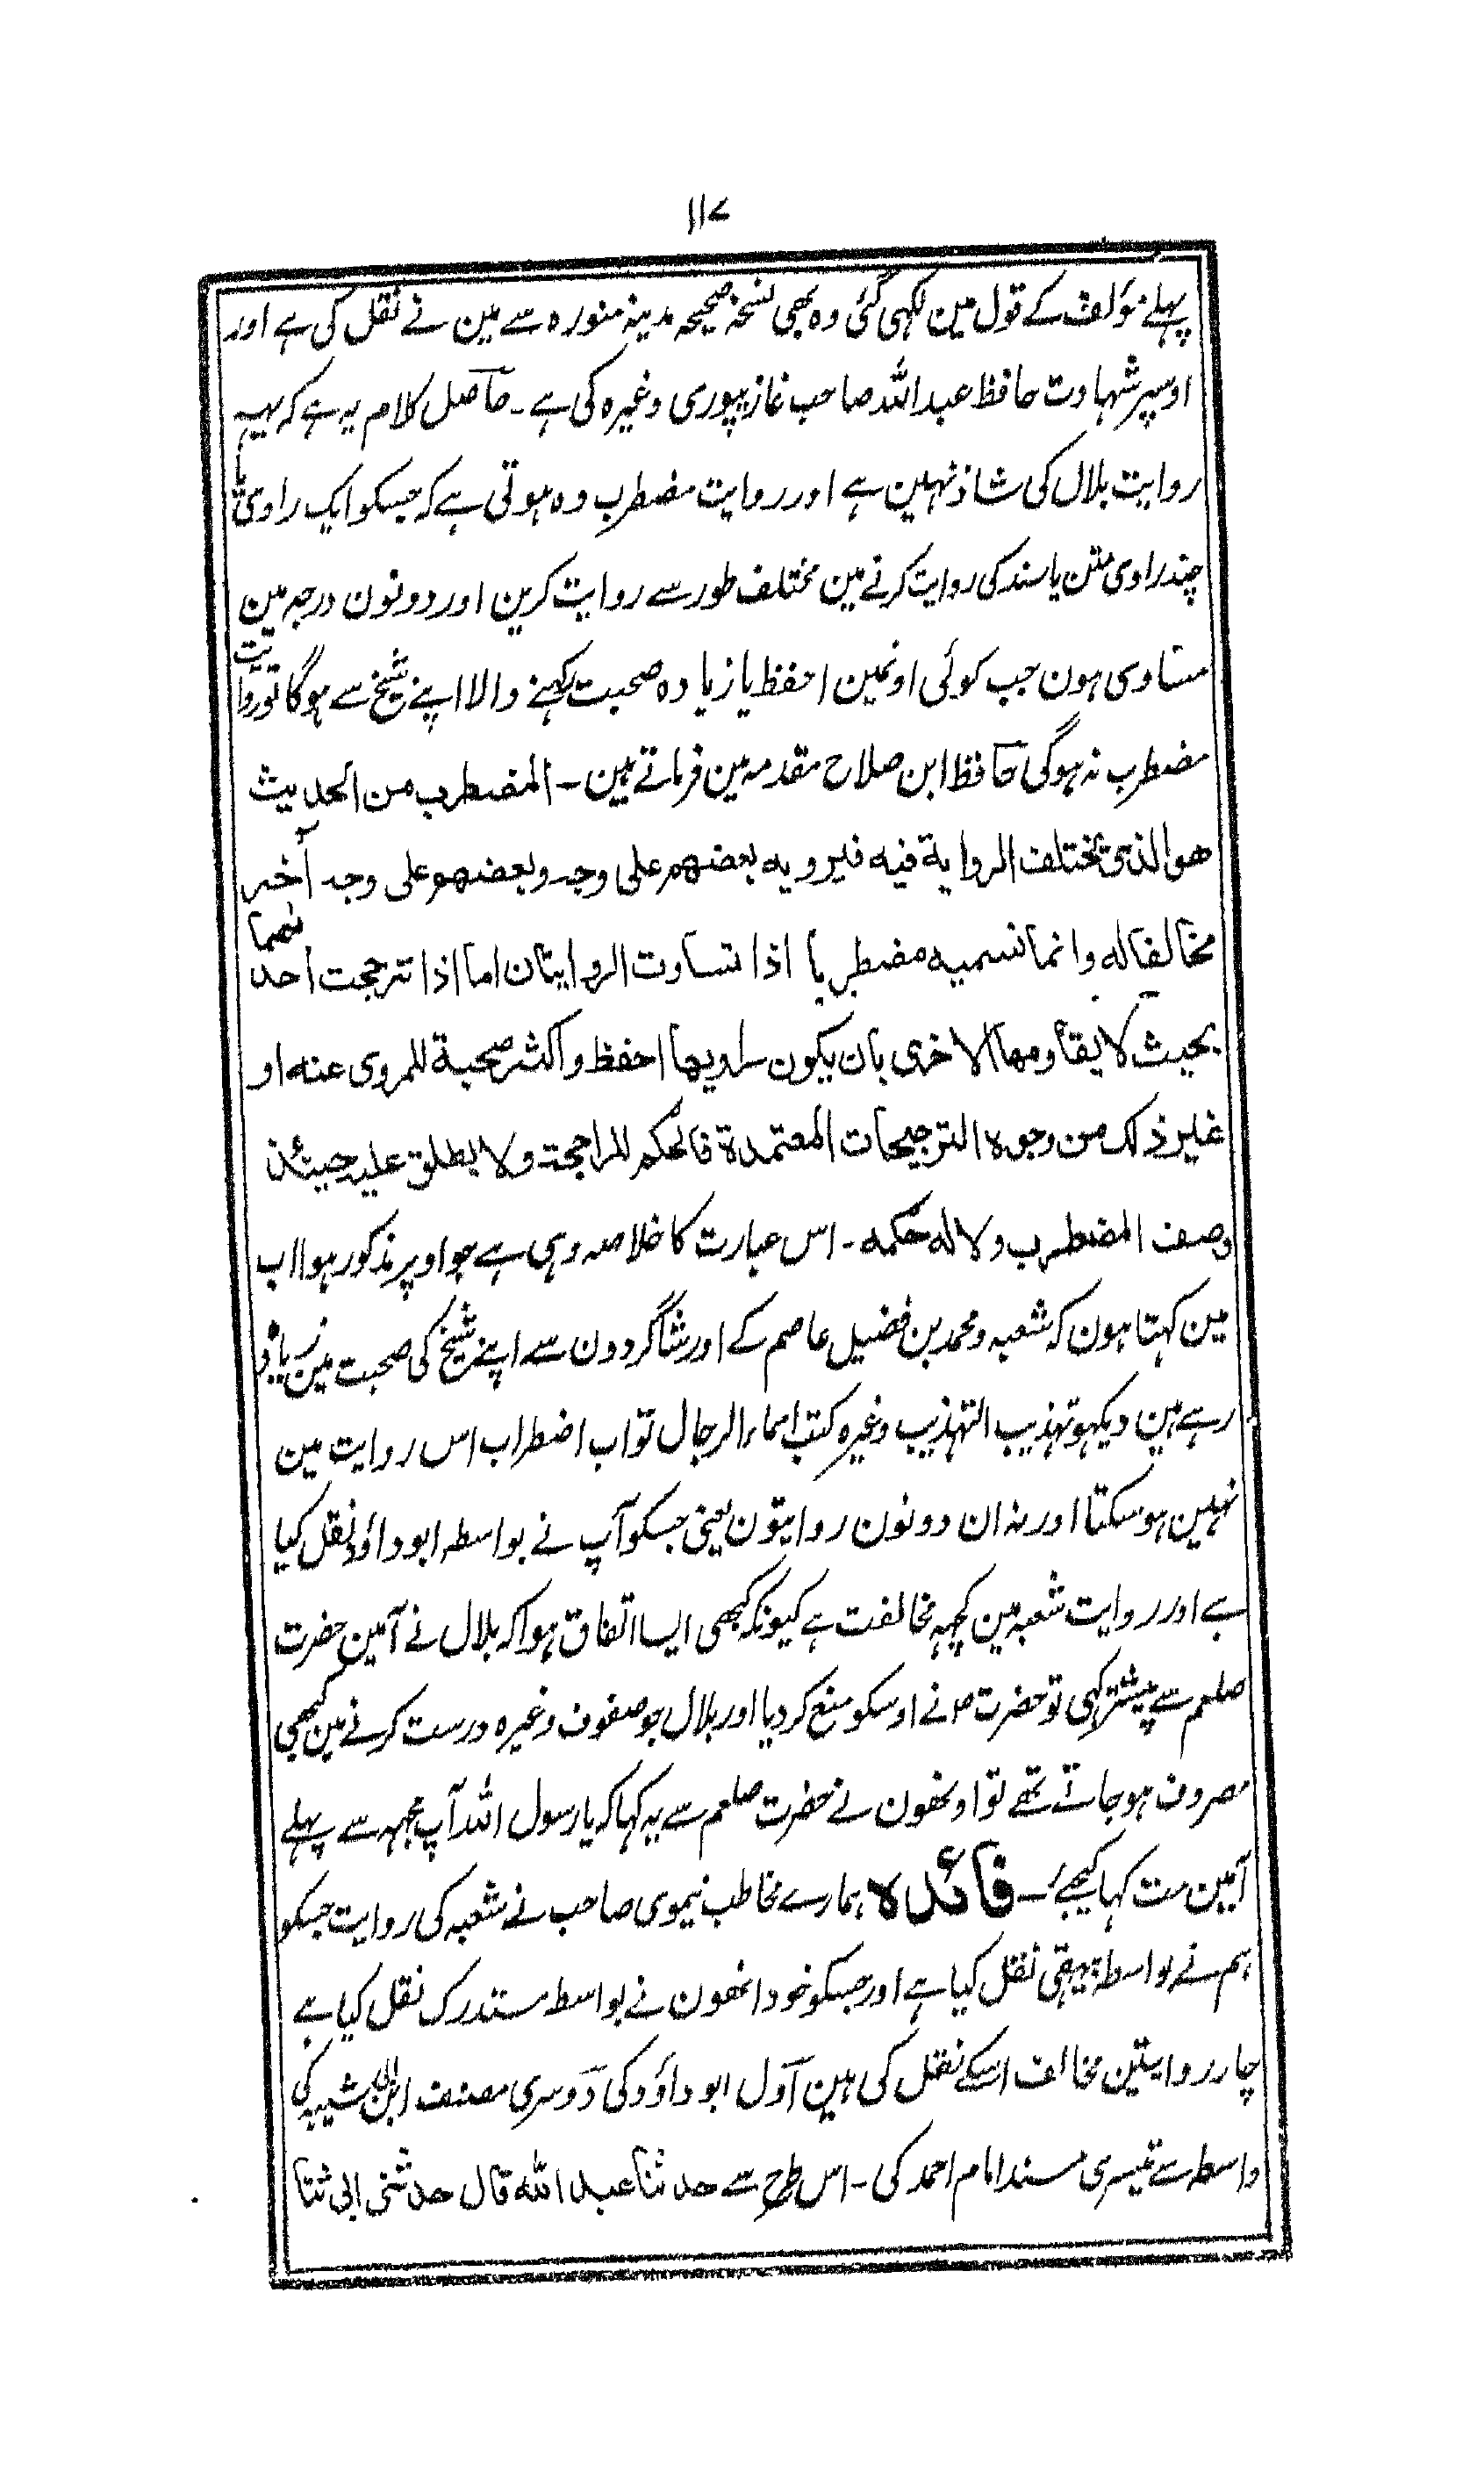 ۱۱۷
پہلے مؤلف کے قول مین لکہی گئی وہ بھی نسخۂ صحیحہ مدینہ منورہ سے مین نے نقل کی ہے اور
اوسپر شہادت حافظ عبد اللہ صاحب غازیپوری وغیرہ کی ہے۔ حاصل کلام یہ ہے کہ یہہ
روایت بلال کی شاذ نہین ہے اور روایت مضطرب وہ ہوتی ہے کہ جسکو ایک راوی یا
چند راوی متن یا سند کی روایت کرنے مین مختلف طور سے روایت کرین اور دونون درجہ مین
مساوی ہون جب کوئی اونمین احفظ یا زیادہ صحبت رکہنے والا اپنے شیخ سے ہوگا تو روایت
مضطرب نہ ہوگی حافظ ابن صلاح مقدمہ مین فرماتے ہین۔ المضطرب من الحدیث
هو الذی تختلف الروایة فیه فیرویه بعضهم علی وجه وبعضهم علی وجه آخر
مخالفا له وانما نسمیه مضطربا اذا تساوت الروایتان اما اذا ترجحت احدٰهما
بحیث لا یقاومها الاخری بان یکون راویها احفظ واکثر صحبة للمروی عنه او
غیر ذلک من وجوه الترجیحات المعتمدة فالحکم للراجحة ولا یطلق علیه حینئذ
وصف المضطرب ولا له حکمه۔ اس عبارت کا خلاصہ وہی ہے جو اوپر مذکور ہوا اب
مین کہتا ہون کہ شعبہ و محمد بن فضیل عاصم کے اور شاگردون سے اپنے شیخ کی صحبت مین زیادہ
رہے ہین دیکہو تہذیب التہذیب وغیرہ کتب اسماء الرجال تو اب اضطراب اس روایت مین
نہین ہوسکتا اور نہ ان دونون روایتون یعنی جسکو آپ نے بواسطہ ابوداؤد نقل کیا
ہے اور روایت شعبہ مین کچہہ مخالفت ہے کیونکہ کبھی ایسا اتفاق ہوا کہ بلال نے آمین حضرت
صلعم سے پیشتر کہی تو حضرت صؐ نے اوسکو منع کردیا اور بلال جو صفوف وغیرہ درست کرنے مین کبھی
مصروف ہوجاتے تھے تو اونھون نے حضرت صلعم سے یہ کہا کہ یا رسول اللہ آپ مجہہ سے پہلے
آمین مت کہا کیجیے۔ فائدہ ہمارے مخاطب نیموی صاحب نے شعبہ کی روایت جسکو
ہم نے بواسطہ بیہقی نقل کیا ہے اور جسکو خود انھون نے بواسطہ مستدرک نقل کیا ہے
چار روایتین مخالف اسکے نقل کی ہین اول ابو داؤد کی دوسری مصنف ابن ابی شیبہ کی
واسطہ سے تیسری مسند امام احمد کی۔ اس طرح سے حدثنا عبد الله قال حدثنی ابی ثنا